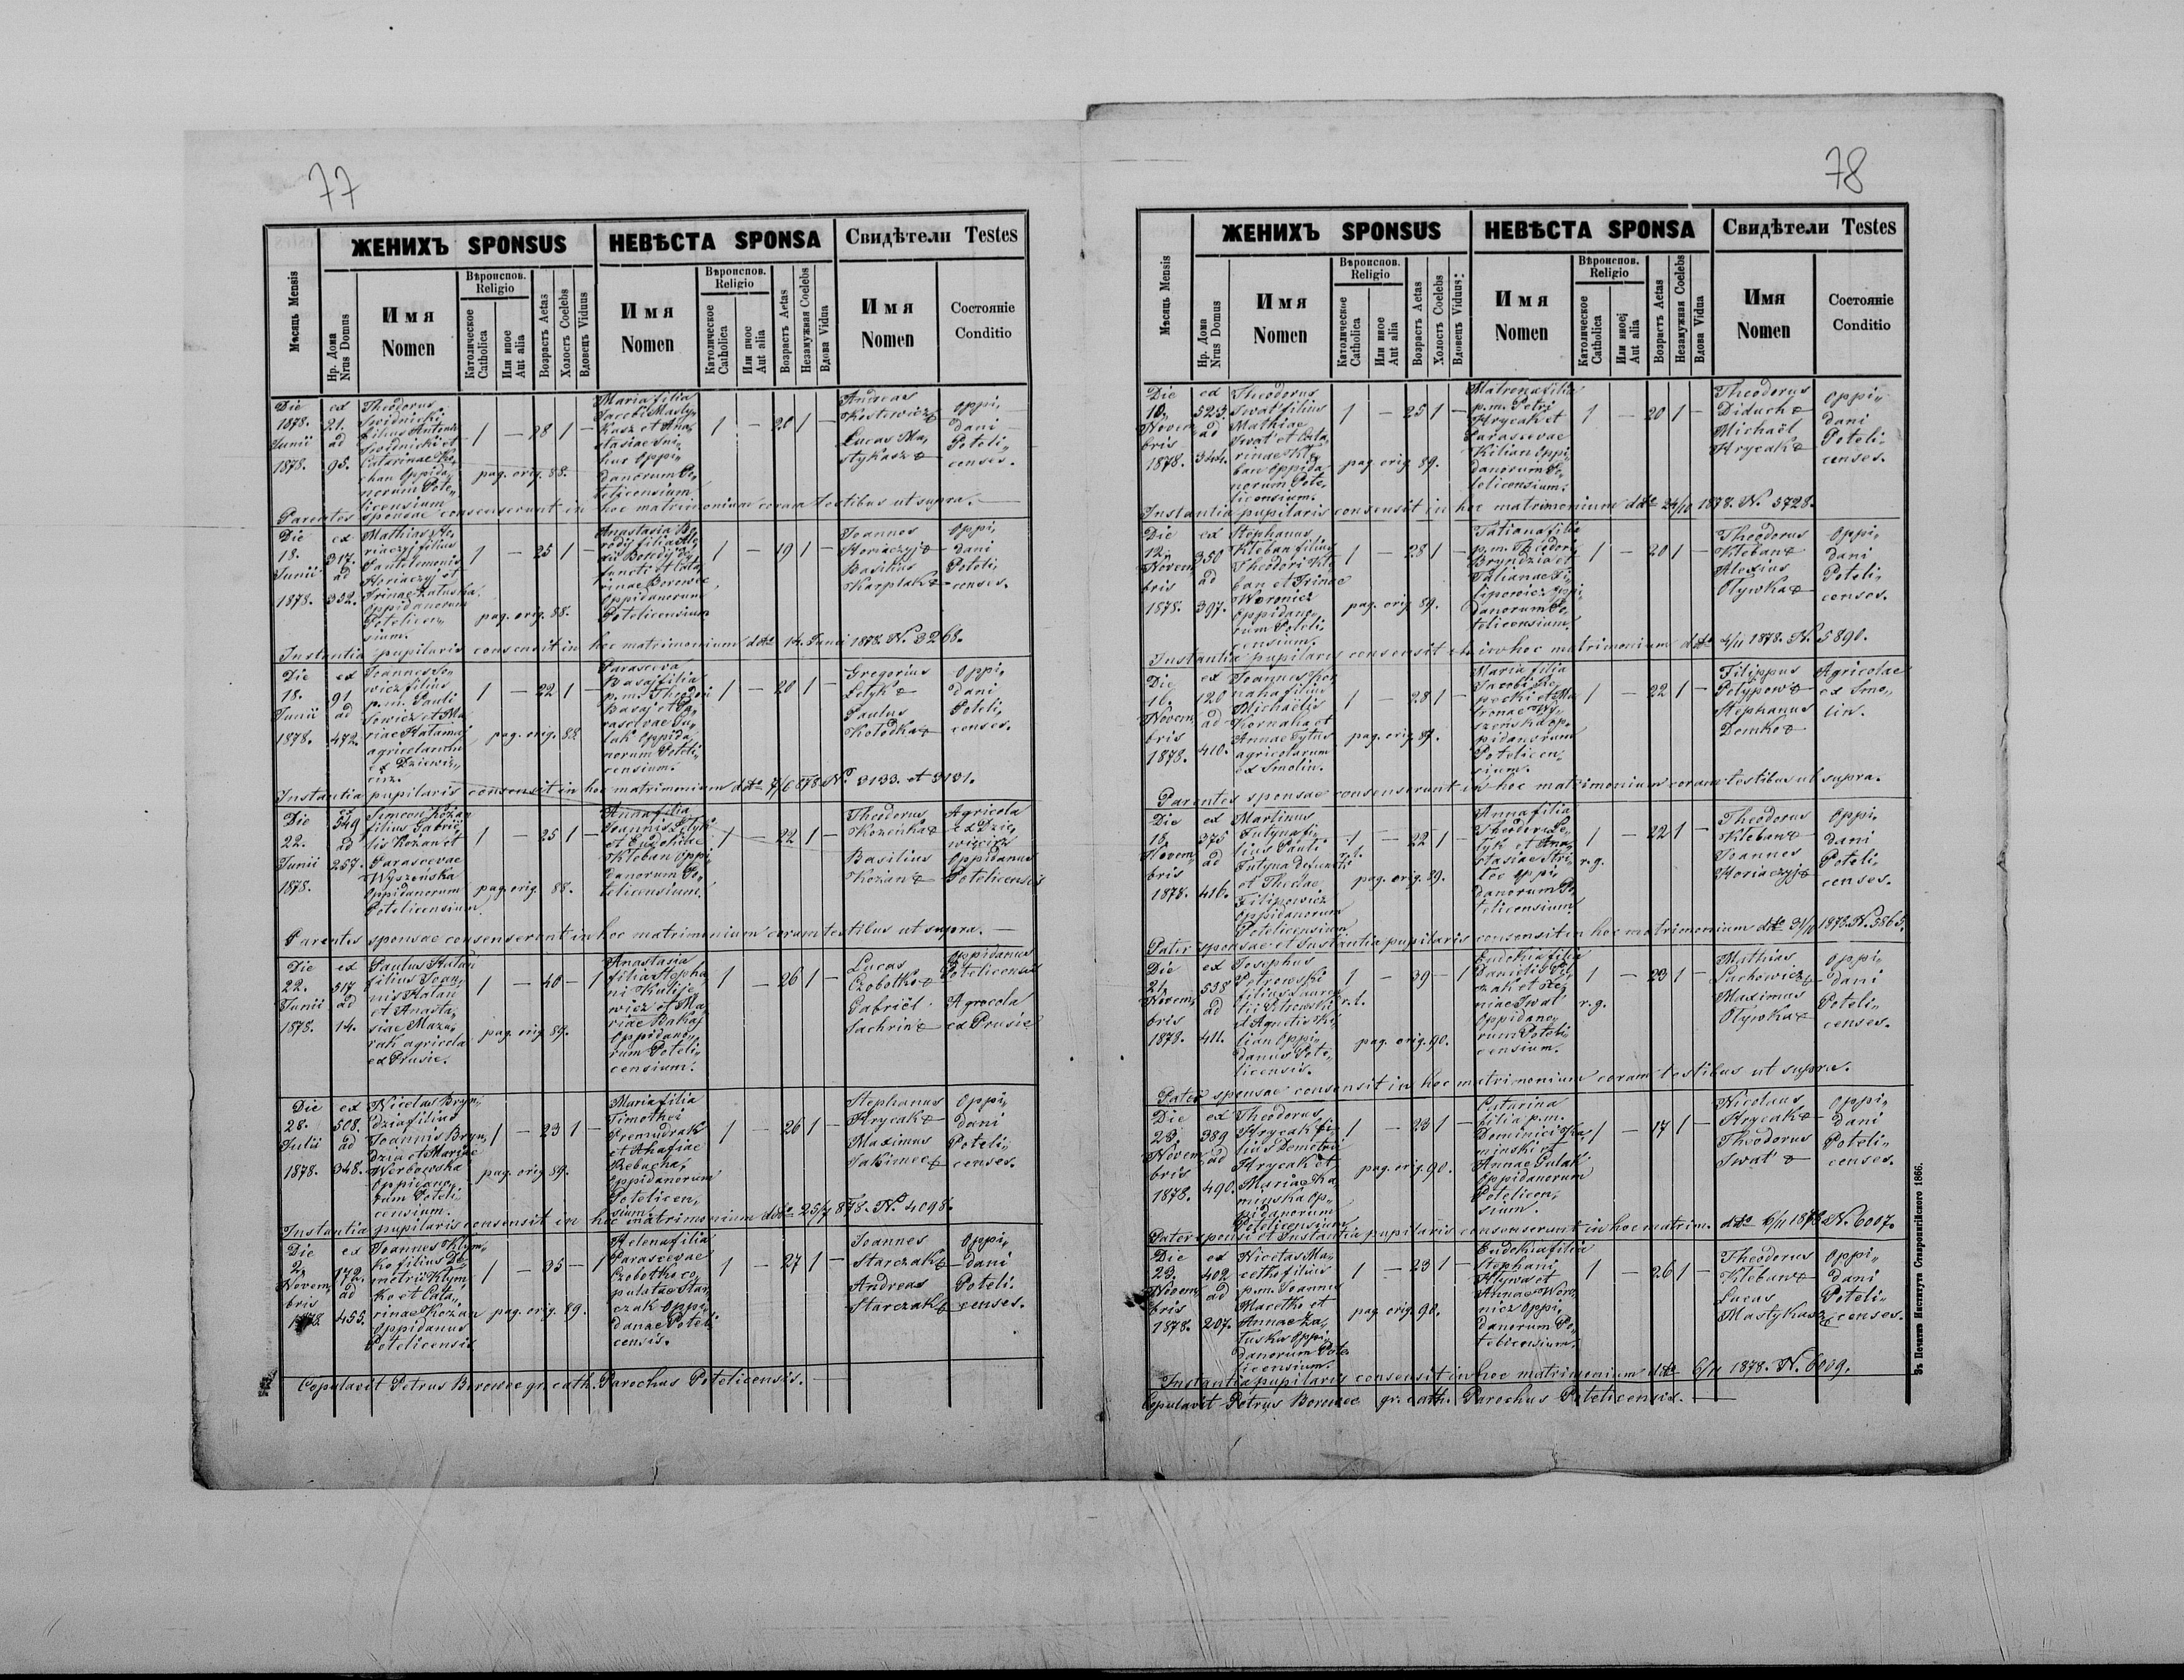 77
ЖЕНИХЪ SPONSUS
НЕВѢСТА SPONSA
Свидѣтели Testes
Мѣсяць Mensis
Нр. Дома Nrus Domus
Имя Nomen
Вѣроиспов. Religio
Католическое Catholica
Или иное Aut alia
Возрастъ Aetas
Холостъ Coelebs
Вдовецъ Viduus
Имя Nomen
Вѣроиспов. Religio
Католическое Catholica
Или иное Aut alia
Возрастъ Aetas
Незамужная Coelebs
Вдова Vidua
Имя Nomen
Состоянiе Conditio
Die 1878. Junii 1878.
ex 21. ad 95.
Theodorus
Swidnicki
filius Antonii
Swidnicki et
Catarinae Ko„
chan Oppida„
norum Pote„
licensium
1 — 28 1 —
pag. orig. 88.
Maria filia
Jacobi Masty„
kasz et Ana„
stasiae
Oppi„
danorum Po„
telicensium
1 — 20 1 —
Andreas
Kostewicz
Lucas Ma„
stykasz
Oppi„
dani
Poteli„
censes.
Parentes sponsae consenserunt in hoc matrimonium coram testibus ut supra. —
Die 18. Junii 1878.
ex 317. ad 352.
Mathias Ho„
riaczyj filius
Pantelemonis
Horiaczyj et
Irinae Załuska
Oppidanorum
Potelicen„
sium.
1 — 25 1 —
pag. orig. 88.
Anastasia Bo„
rodij filia
Borodij De„
functi et Cata„
rinae Borowec
Oppidanorum
Potelicensium
1 — 19 1 —
Joannes
Horiaczyj
Basilius
Karplak
Oppi„
dani
Poteli„
censes.
Instantia pupilaris consensit in hoc matrimonium ddto 14. Junii 1878. N. 3268.
Die 18. Junii 1878.
ex 91 ad 472.
Joannes So„
wicz filius
p.m. Pauli
Sowicz et Ma„
riae Hałamaj
agricolarum
ex Dziewię„
cirz.
1 — 22 1 —
pag. orig. 88
Parasceva
Basaj filia
p.m. Theodori
Basaj et Pa„
rascevae Gu„
lak Oppida„
norum Poteli„
censium.
1 — 20 1 —
Gregorius
Łełyk
Paulus
Kołodka
Oppi„
dani
Poteli„
censes.
Instantia pupilaris consensit in hoc matrimonium ddto 7/6 878 No 3133. et 3131.
Die 22. Junii 1878.
ex 549 ad 257.
Simeon Kożan
filius Gabrie„
lis Kożan et
Parascevae
Wyszeńska
Oppidanorum
Potelicensium.
1 — 25 1 —
pag. orig. 88.
Anna filia
Joannis Łełyk
et Eudokiae
Kłeban Oppi„
danorum Po„
telicensium.
1 — 22 1 —
Theodorus
Kozenka
Basilius
Kożan
Agricola
ex Dzie„
więcirz
Oppidanus
Potelicensis
Parentes sponsae consenserunt in hoc matrimonium coram testibus ut supra. —
Die 22. Junii 1878.
ex 517 ad 14.
Paulus Hałan
filius Joan„
nis Hałan
et Anasta„
siae Maza„
rak agricola
ex Prusie.
1 — 40 — 1
pag. orig. 89.
Anastasia
filia Stepha„
ni Kulije„
wicz et Ma„
riae Bakaj
Oppidano„
rum Poteli„
censium.
1 — 26 1 —
Lucas
Czobotko
Gabriël
Sachrin
Oppidanus
Potelicensis
Agrocola
ex Prusie
Die 28. Julii 1878.
ex 508. ad 348.
Nicetas Bryn„
dzia filius
Joannis Bryn„
dzia et Mariae
Werbowska
Oppidano„
rum Poteli„
censium.
1 — 23 1 —
pag. orig. 89.
Maria filia
Timothei
Premudrak
et Ahafiae
Bebacha,
Oppidanorum
Potelicen„
sium.
1 — 26 1 —
Stephanus
Hrycak
Maximus
Jakimec
Oppi„
dani
Poteli„
censes.
Instantia pupilaris consensit in hoc matrimonium ddto 25/7 878. N. 4098.
Die 2. Novem„ bris 1878.
ex 172. ad 455.
Joannes Kłym„
ko filius De„
metrii Kłym„
ko et Cata„
rinae Kożan
Oppidanus
Potelicensis
1 — 35 — 1
pag. orig. 89.
Helena filia
Parascevae
Czobotko co„
pulatae Star„
czak Oppi„
danae Poteli„
censis.
1 — 27 1 —
Joannes
Starczak
Andreas
Starczak
Oppi„
dani
Poteli„
censes.
Copulavit Petrus Borowec gr. cath. Parochus Potelicensis. —
78
ЖЕНИХЪ SPONSUS
НЕВѢСТА SPONSA
Свидѣтели Testes
Мѣсяць Mensis
Нр. Дома Nrus Domus
Имя Nomen
Вѣроиспов. Religio
Католическое Catholica
Или иное Aut alia
Возрастъ Aetas
Холостъ Coelebs
Вдовецъ Viduus:
Имя Nomen
Вѣроиспов. Religio
Католическое Catholica
Или иноеj Aut alia
Возрастъ Aetas
Незамужная Coelebs
Вдова Vidua
Имя Nomen
Состоянiе Conditio
Die 10. Novem„ bris 1878.
ex 523 ad 344.
Theodorus
Iwat filius
Mathiae
Iwat et Cata„
rinae Kłe„
ban Oppida„
norum Pote„
licensium.
1 — 25 1 —
pag. orig. 89.
Matrena filia
p.m. Petri
Hrycak et
Parascevae
Kilian Oppi„
danorum Po„
telicensium.
1 — 20 1 —
Theodorus
Diduch
Michaël
Hrycak
Oppi„
dani
Poteli„
censes.
Instantia pupilaris consensit in hoc matrimonium ddto 24/10 1878. N. 5728.
Die 12. Novem„ bris 1878.
ex 350 ad 397.
Stephanus
Kłeban filius
Theodori Kłe„
ban et Irinae
Woronicz
Oppidano„
rum Poteli„
censium.
1 — 28 1 —
pag. orig. 89.
Tatiana filia
p.m. Theodori
Bryndzia et
Tatianae Fi„
lipowicz Oppi„
danorum Po„
telicensium.
1 — 20 1 —
Theodorus
Kłeban
Alexius
Oływka
Oppi„
dani
Poteli„
censes.
Instantia pupilaris consensit in hoc matrimonium ddto 4/11 1878. N. 5890.
Die 16. Novem„ bris 1878.
ex 120 ad 410.
Joannes Kor„
naha filius
Michaëlis
Kornaha et
Annae Tytus
agricolarum
ex Smolin.
1 — 28 1 —
pag. orig. 89.
Maria filia
Jacobi
et Ma„
tronae Wy„
szeńska Op„
pidanorum
Potelicen„
sium.
1 — 22 1 —
Filippus
Pełypow
Stephanus
Demko
Agricolae
ex Smo„
lin.
Parentes sponsae consenserunt in hoc matrimonium coram testibus ut supra.
Die 18. Novem„ bris 1878.
ex 375 ad 416.
Martinus
Futyna fi„
lius Pauli
Futyna defuncti
et Theclae
Filipowicz
Oppidanorum
Potelicensium
1 r.l. — 22 1 —
pag. orig. 89.
Anna filia
Theodori Łe„
łyk et Ana„
stasiae Stri„
lec Oppi„
danorum Po„
telicensium.
1 r.g. — 22 1 —
Theodorus
Kłeban
Joannes
Horiaczyj
Oppi„
dani
Poteli„
censes.
Pater sponsae et Instantia pupilaris consensit in hoc matrimonium ddto 31/10 1878. N. 5865.
Die 21. Novem„ bris 1878.
ex 538 ad 411.
Josephus
Petrowski
filius Lauren„
tii Petrowski
et Agnetis Ki„
lian Oppi„
danus Pote„
licensis.
1 r.l. — 39 — 1
pag. orig. 90.
Eudokia filia
Danielis
et Xe„
niae Iwat
Oppidano„
rum Poteli„
censium.
1 r.g. — 23 1 —
Mathias
Lachowicz
Maximus
Oływka
Oppi„
dani
Poteli„
censes.
Pater sponsae consensit in hoc matrimonium coram testibus ut supra.
Die 23. Novem„ bris 1878.
ex 389 ad 490.
Theodorus
Hrycak fi„
lius Demetrii
Hrycak et
Mariae Ka„
minska Op„
pidanorum
Potelicensium
1 — 23 1 —
pag. orig. 90.
Catarina
filia p.m.
Dominici Ka„
minski et
Annae Gulak
Oppidanorum
Potelicen„
sium.
1 — 17 1 —
Nicolaus
Hrycak
Theodorus
Iwat
Oppi„
dani
Poteli„
censes.
Pater sponsi et Instantia pupilaris consenserunt in hoc matrim. ddto 6/11 1878 N. 6007.
Die 23. Novem„ bris 1878.
ex 402 ad 207.
Nicetas Ma„
cetko filius
p.m. Joannis
Macetko et
Annae Za„
łuska Oppi„
danorum Pote„
licensium.
1 — 23 1 —
pag. orig. 90.
Eudokia filia
Stephani
Hływa et
Annae Woro„
nicz Oppi„
danorum Po„
telicensium.
1 — 26 1 —
Theodorus
Kłeban
Lucas
Mastykasz
Oppi„
dani
Poteli„
censes.
Instantia pupilaris consensit in hoc matrimonium ddto 6/11 1878. N. 6009.
Copulavit Petrus Borowec gr. cath. Parochus Potelicensis. —
Зъ Печатнѣ Института Ставропигiйского 1866.